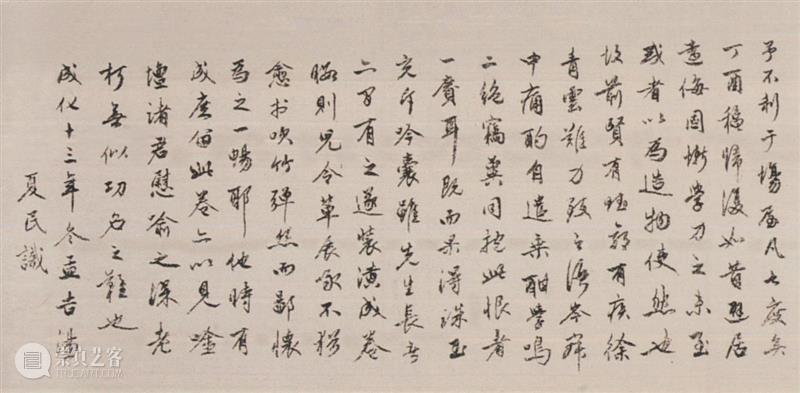 予不利于場屋凡七度矣
丁酉穐歸復如昔避居
侮固慚學力之未至
或者以為造物使然也
故前賢有有疾徐
青雲難力致之語岑寂
中痛酌自遣乘酣學鳴
二絕竊冀同抱此恨者
一賡耳既而果得珠玉
充斥吟囊雖先生長者
亦有之遂裝潢成卷
暇則兒令展咏不猶
愈於吹竹彈絲而鄙懷
為之一暢耶他時有
成庶留此卷亦以見
壇諸君慰喻之深老
朽無似功名之難也
成化十三年冬孟吉
夏民識
崇真艺客